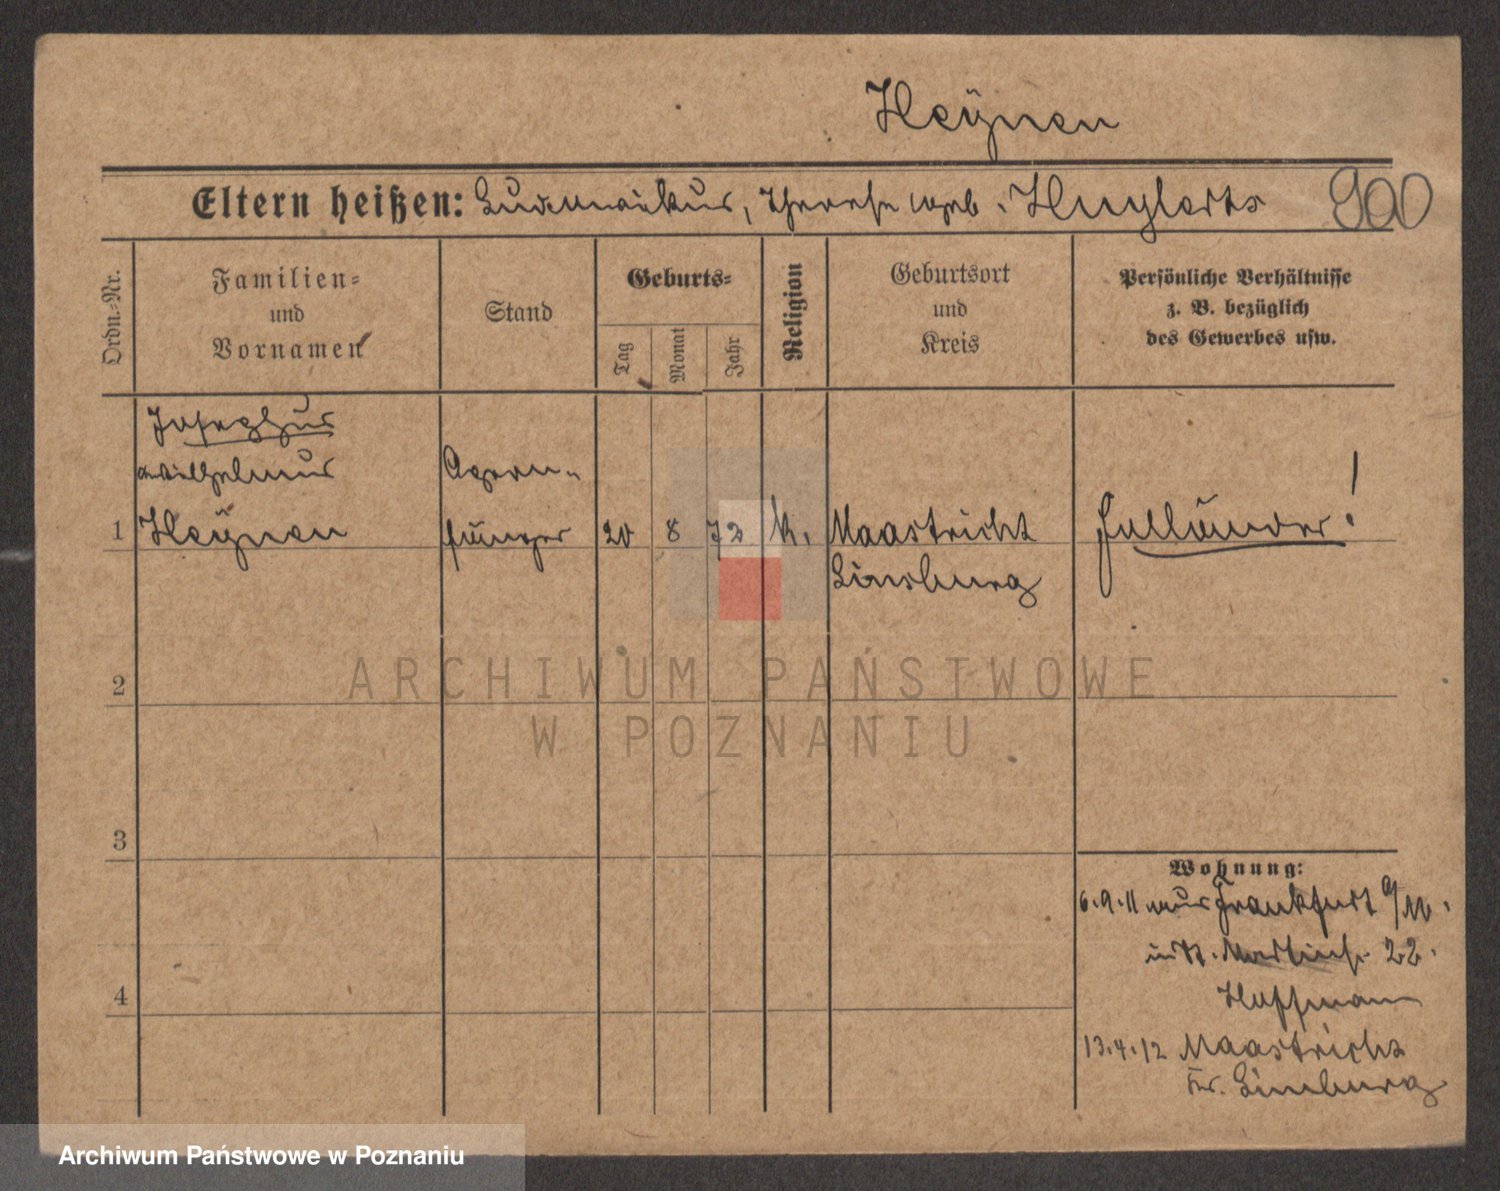 Heÿnen
Eltern heißen: Ludowikus, Therese geb. Huylerts 900
Ordn.-Nr.
Familien- und Vornamen
Stand
Geburts-
Tag
Monat
Jahr
Religion
Geburtsort und Kreis
Persönliche Verhältnisse
z. B. bezüglich
des Gewerbes usw.
Josephus
Wilhelmus
1 Heÿnen
Opern-
sänger
20 8 72 k. Maastricht
Limburg
Holländer!
2
3
4
Wohnung:
6.9.11 aus Frankfurt a/M.
in St. Martinstr. 22.
Hoffmann
13.4.12 Maastricht
Kr. Limburg
ARCHIWUM PAŃSTWOWE
W POZNANIU
Archiwum Państwowe w Poznaniu